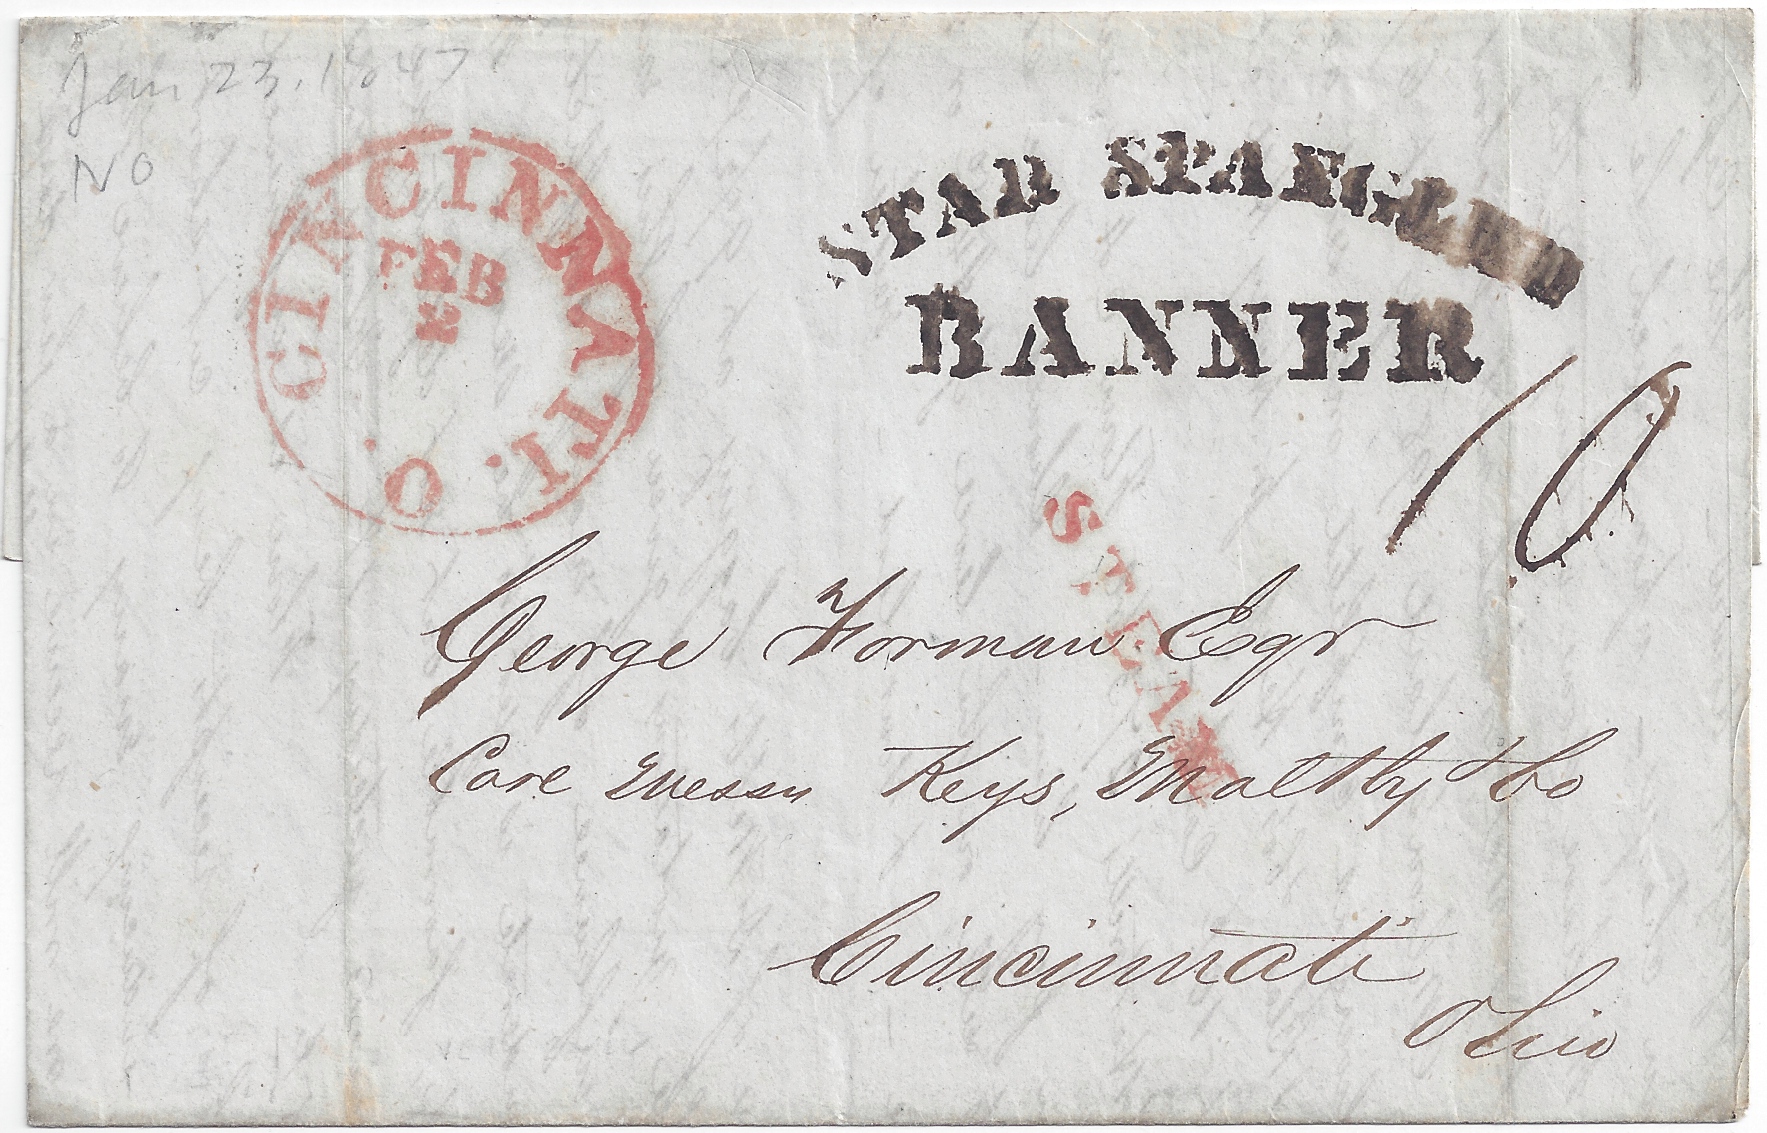 Jan 23. 1847
NO
CINCINNATI. O.
FEB
2
STAR SPANGLED
BANNER
10
STEAM
George Forman Esqr
Care Messrs Keys, Maltby & Co
Cincinnati
Ohio